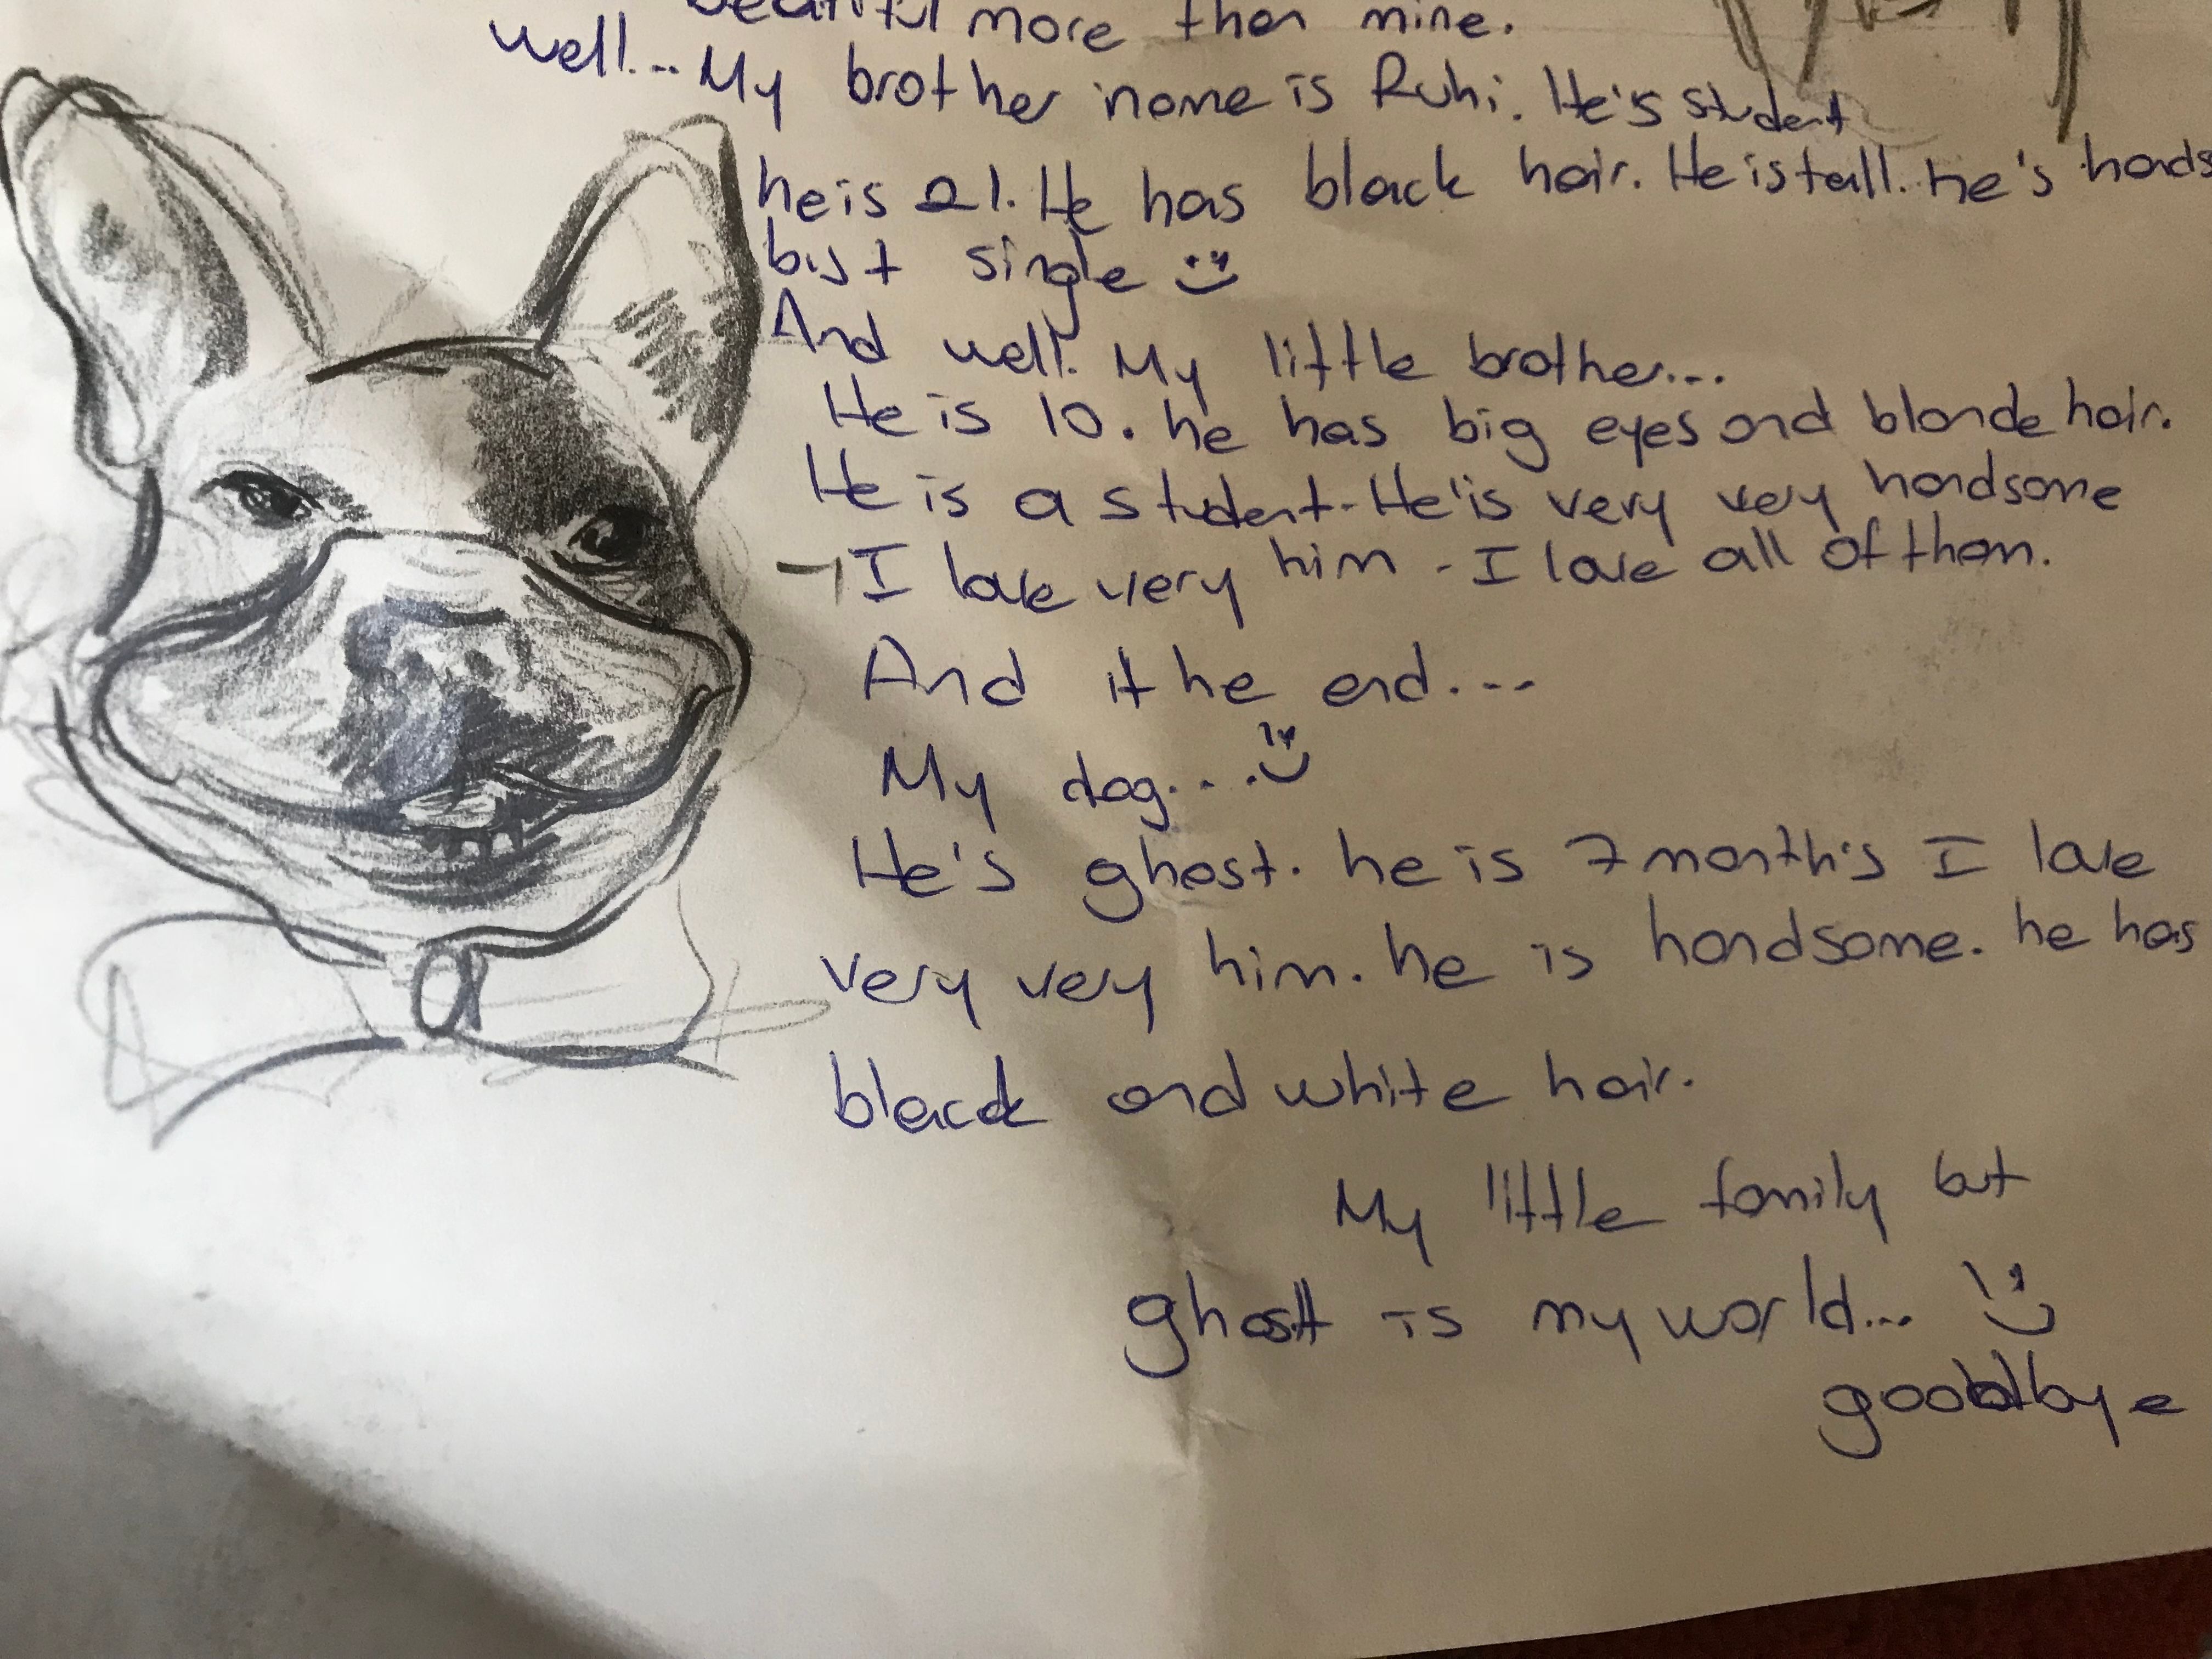 beautiful more then mine.
well... My brother name is Ruhi. He's student
he is 21. He has black hair. He is tall. he's hands
bist single :)
And well. My little brother...
He is 10. he has big eyes and blonde hair.
He is a student. He'is very very handsome
I love very him. I love all of them.
And it he end...
My dog.... :)
He's ghost. he is 7 month's I love
very very him. he is handsome. he has
black and white hair.
My little family but
ghost is my world... :)
goodbye